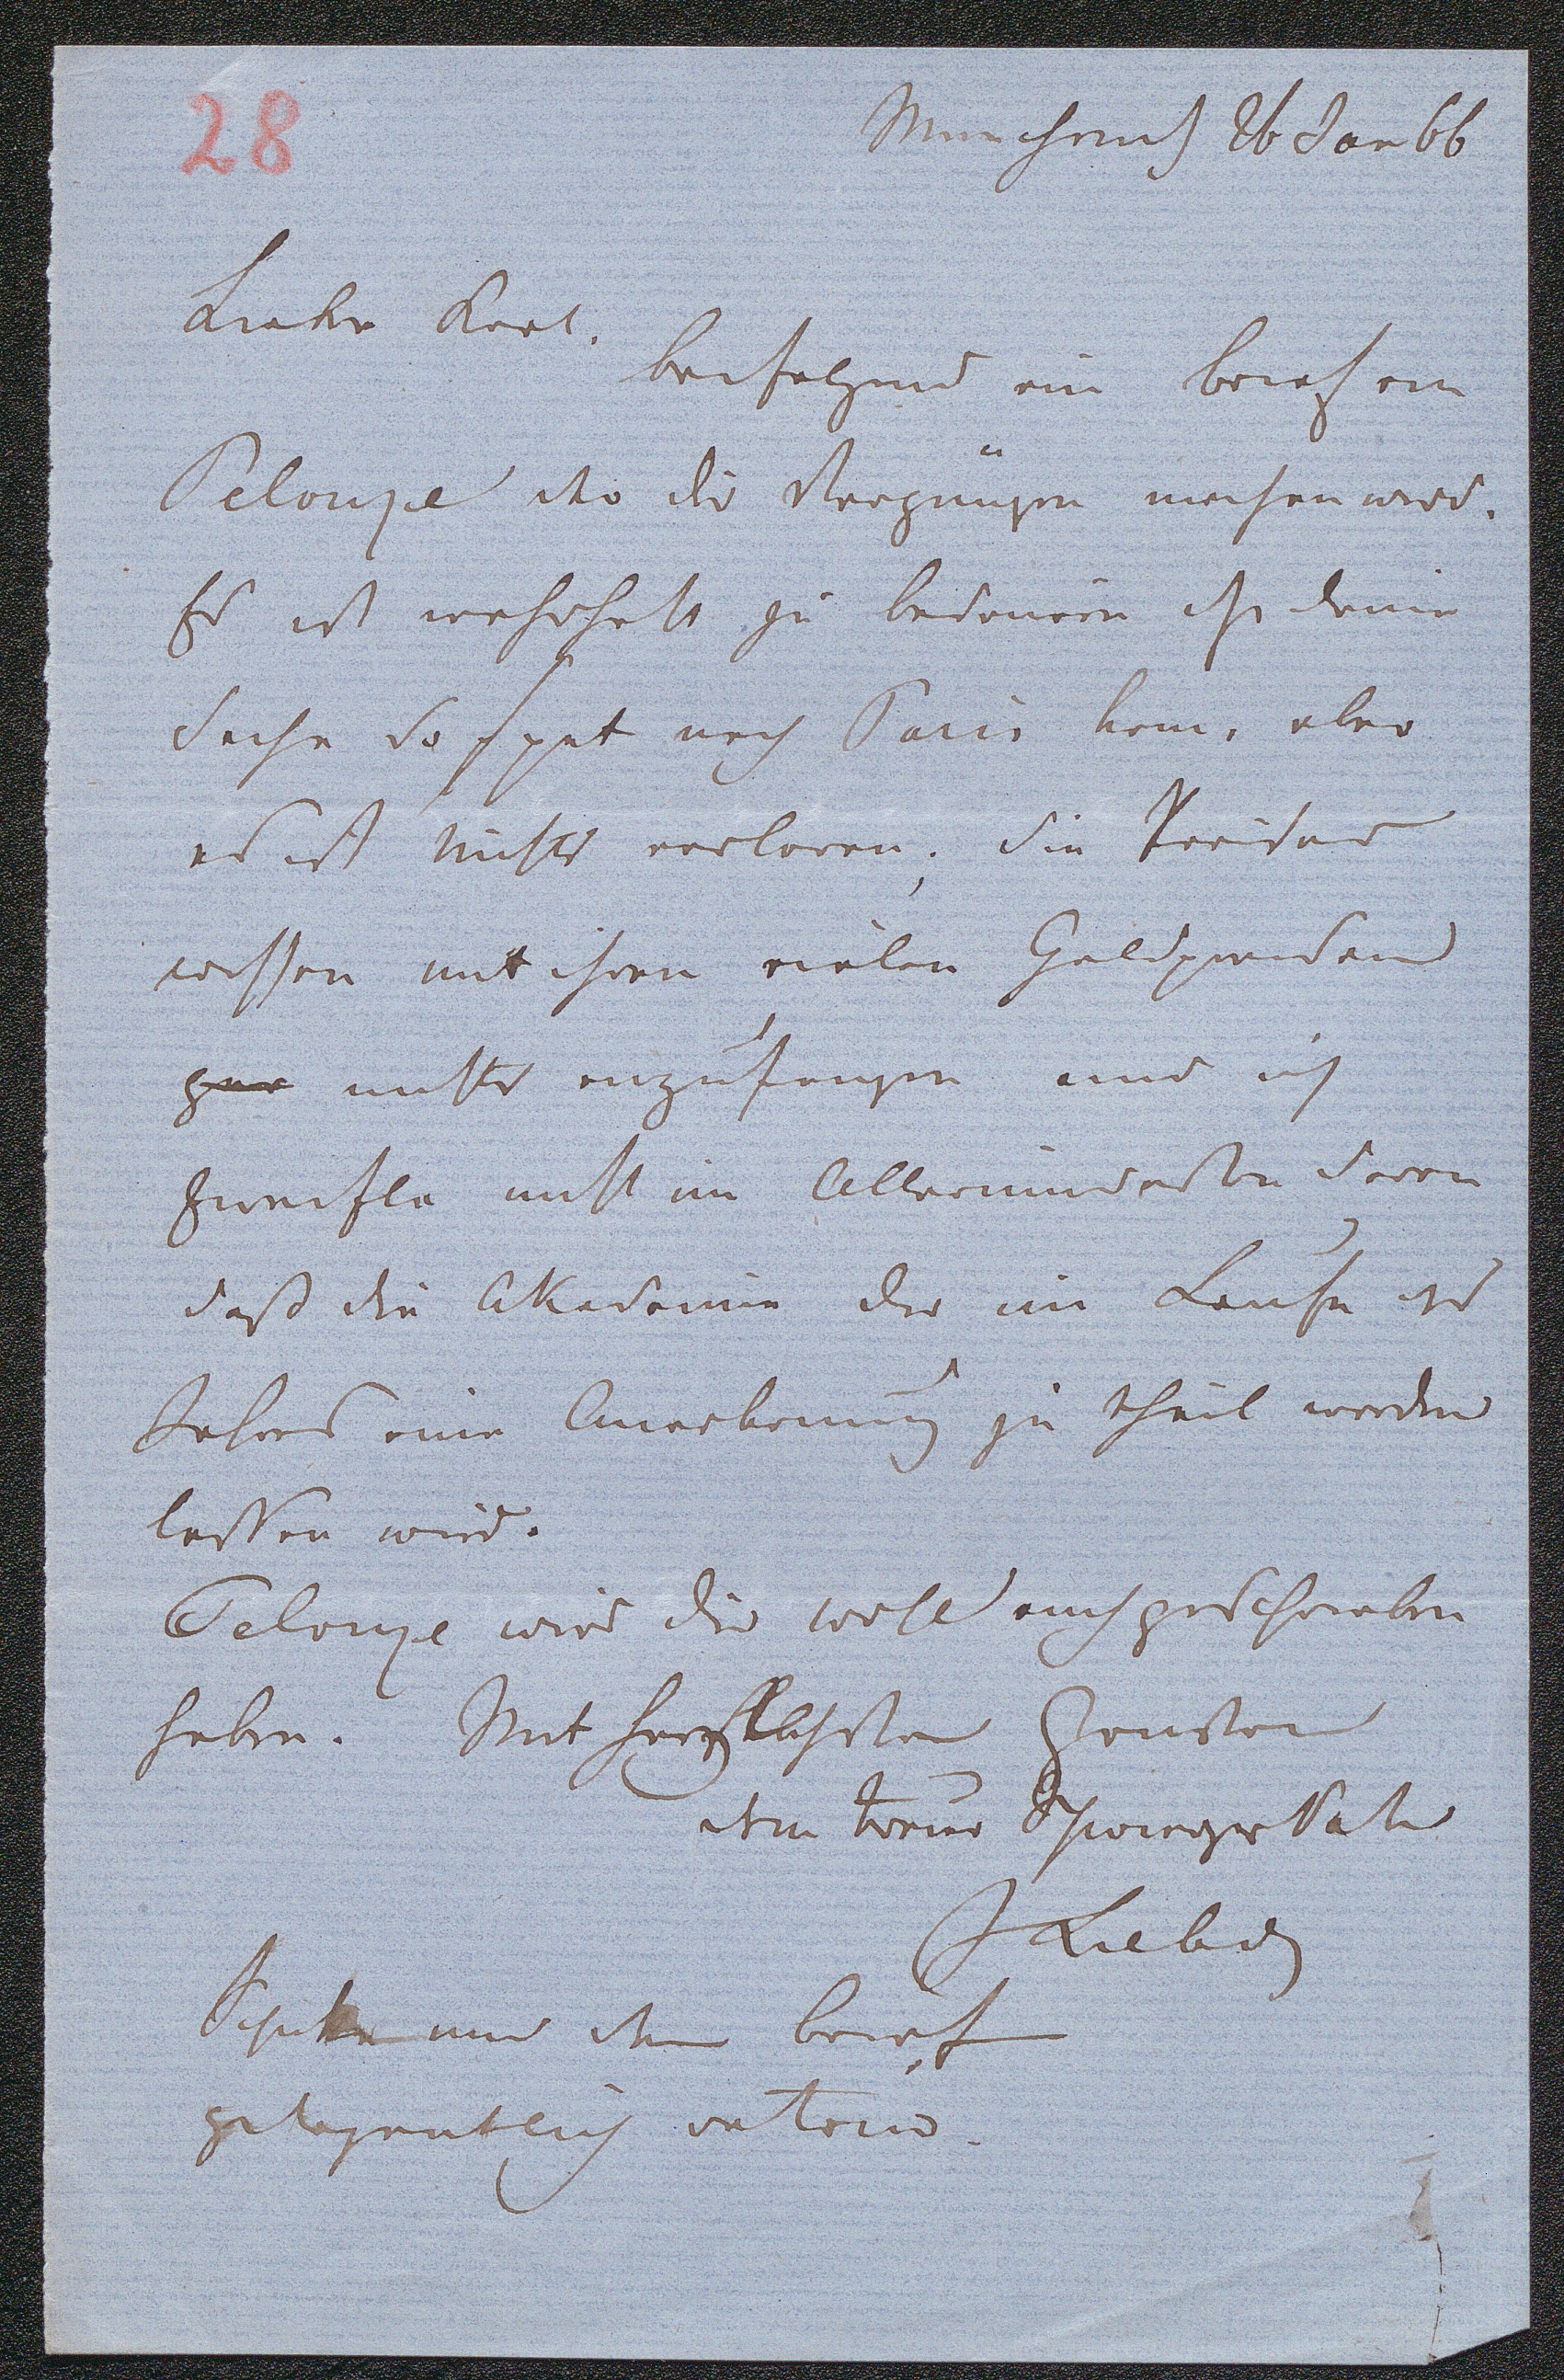 28
München 26 Jan 66
Lieber Karl.
beifolgend ein Brief von
Pelouze der dir Vergnügen machen wird.
Es ist wahrhaft zu bedauern daß deine
Sache so spät nach Paris kam, aber
es ist nichts verloren; die Pariser
wissen mit ihren vielen Geldpreisen
gar nichts anzufangen und ich
zweifle nicht im Allermindesten daran
daß die Akademie dir im Laufe des
Jahres eine Anerkennung zu theil werden
lassen wird.
Pelouze wird dir wohl auch geschrieben
haben. Mit herzlichsten Grüßen
dein treuer Schwiegervater
J Liebig
Schicke mir den Brief
gelegentlich retour.